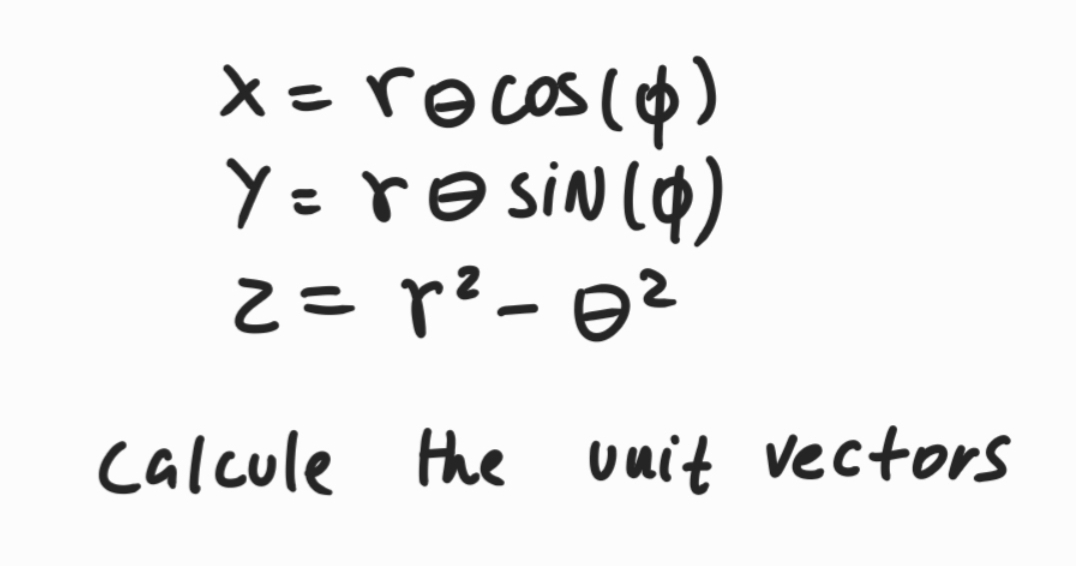 x = rθ cos(ϕ)
y = rθ sin(ϕ)
z = r² - θ²
Calcule the unit vectors